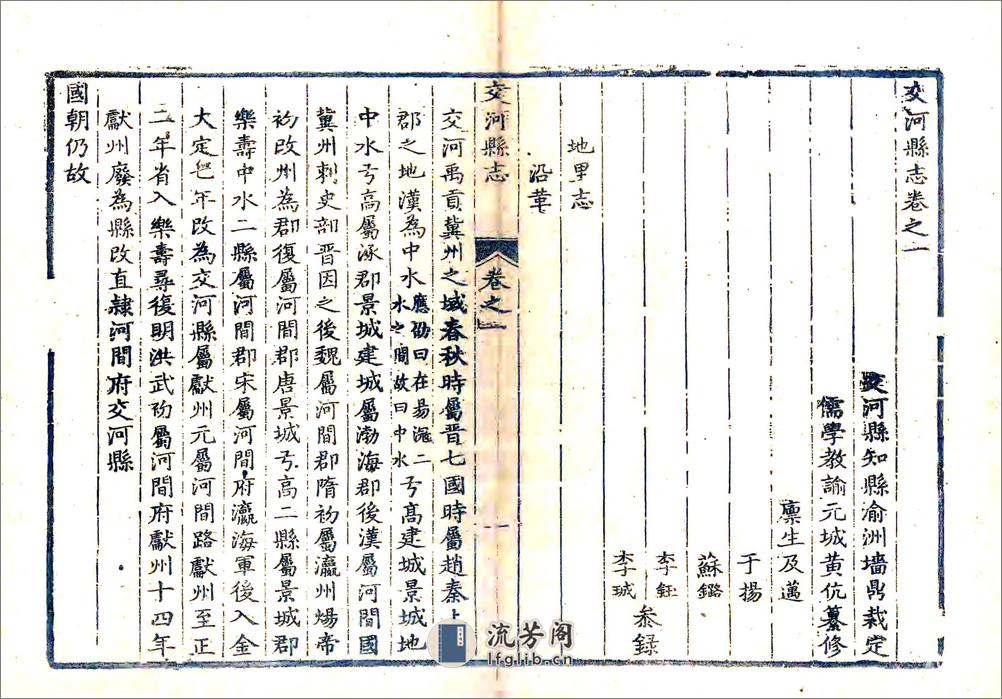 交河縣志卷之一
交河縣知縣渝洲墙鼎裁定
儒學教諭元城黄伉纂修
廪生及邁
于揚
蘇鏴
李鈺
李珹
叅録
地里志
沿革
交河縣志
卷之一
一
交河禹貢冀州之域春秋時屬晋七國時屬趙秦上
郡之地漢為中水應劭曰在易滱二水之間故曰中水兮高建城景城地
中水兮高屬涿郡景城建城屬渤海郡後漢屬河間國
冀州刺史部晋因之後魏屬河間郡隋初屬瀛州煬帝
初改州為郡復屬河間郡唐景城兮高二縣屬景城郡
樂壽中水二縣屬河間郡宋屬河間府瀛海軍後入金
大定七年改為交河縣屬獻州元屬河間路獻州至正
二年省入樂壽尋復明洪武初屬河間府獻州十四年
獻州廢為縣改直隷河間府交河縣
國朝仍故
流芳阁
lfglib.cn